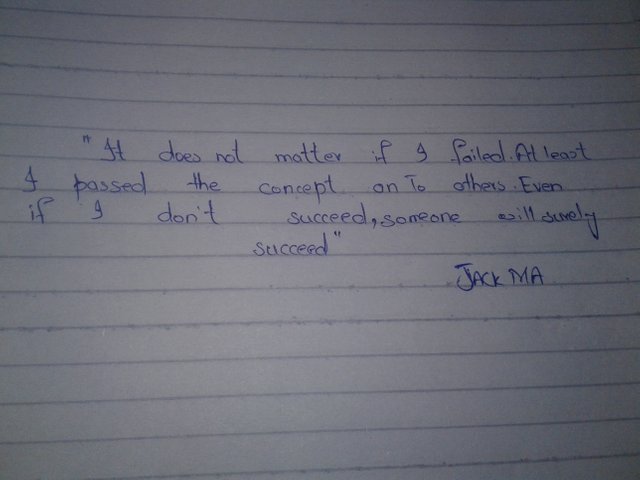 "It does not matter if I failed. At least
I passed the concept on To others. Even
if I don't succeed, someone will surely
succeed"
JACK MA